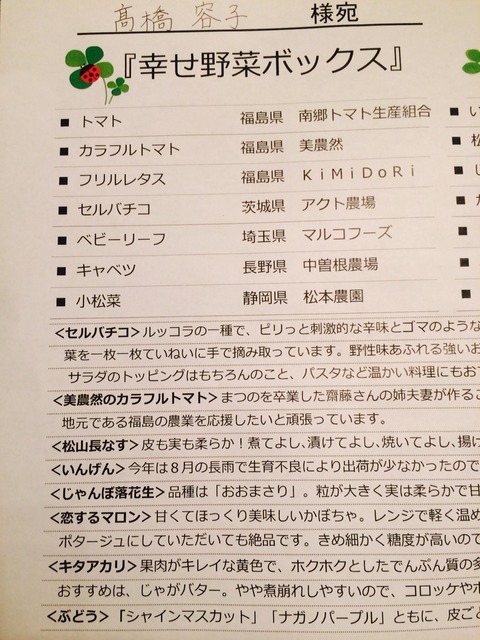 髙橋 容子 様宛
『幸せ野菜ボックス』
■ トマト 福島県 南郷トマト生産組合
■ カラフルトマト 福島県 美農然
■ フリルレタス 福島県 KiMiDoRi
■ セルバチコ 茨城県 アクト農場
■ ベビーリーフ 埼玉県 マルコフーズ
■ キャベツ 長野県 中曽根農場
■ 小松菜 静岡県 松本農園
<セルバチコ>ルッコラの一種で、ピリっと刺激的な辛味とゴマのような
葉を一枚一枚ていねいに手で摘み取っています。野性味あふれる強いお
サラダのトッピングはもちろんのこと、パスタなど温かい料理にもおす
<美農然のカラフルトマト>まつのを卒業した齋藤さんの姉夫妻が作るこ
地元である福島の農業を応援したいと頑張っています。
<松山長なす>皮も実も柔らか！煮てよし、漬けてよし、焼いてよし、揚げ
<いんげん>今年は８月の長雨で生育不良により出荷が少なかったので
<じゃんぼ落花生>品種は「おおまさり」。粒が大きく実は柔らかで甘
<恋するマロン>甘くてほっくり美味しいかぼちゃ。レンジで軽く温め
ポタージュにしていただいても絶品です。きめ細かく糖度が高いので
<キタアカリ>果肉がキレイな黄色で、ホクホクとしたでんぷん質の多
おすすめは、じゃがバター。やや煮崩れしやすいので、コロッケやポ
<ぶどう>「シャインマスカット」「ナガノパープル」ともに、皮ごと